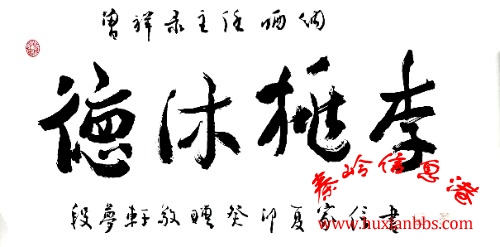 祥录主任哂纳
德沐桃李
段夢軒敬贈癸卯夏家信書
秦岭信息港
www.huxianbbs.com